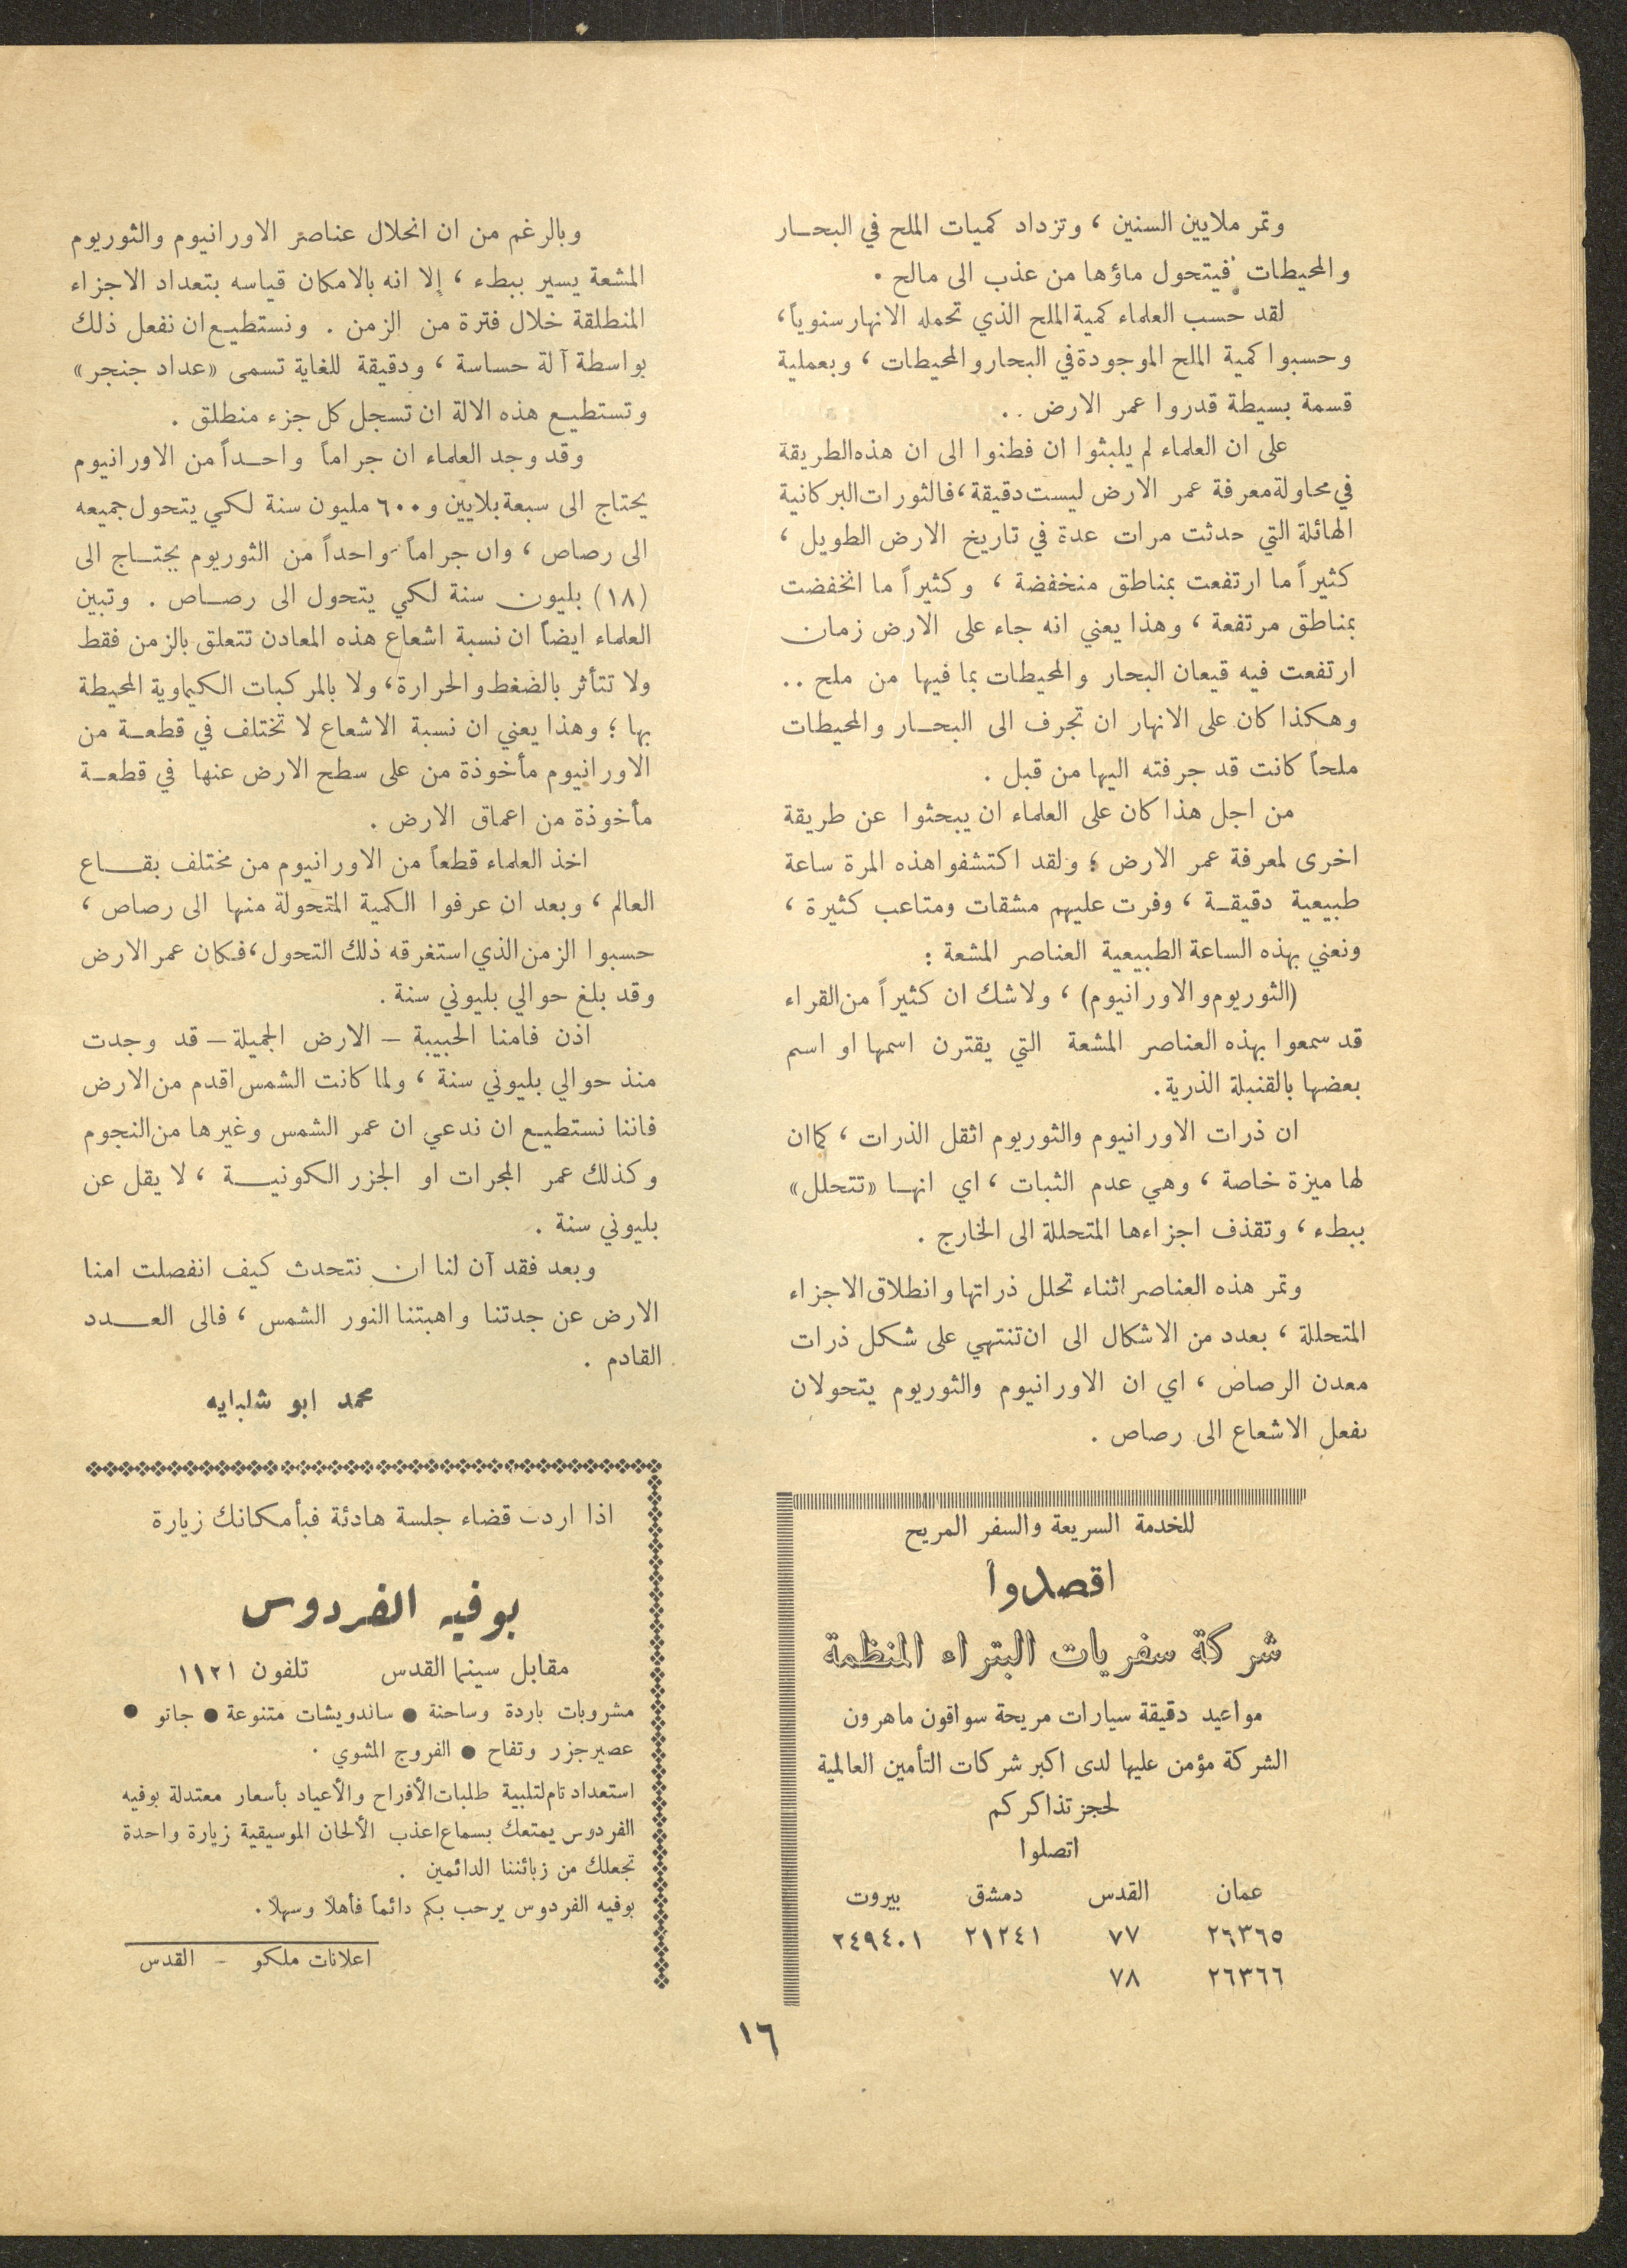 وتمر ملايين السنين ، وتزداد كميات الملح في البحــار
والمحيطات فيتحول ماؤها من عذب الى مالح .
لقد حسب العلماء كمية الملح الذي تحمله الانهار سنوياً ،
وحسبوا كمية الملح الموجودة في البحار والمحيطات ، وبعملية
قسمة بسيطة قدروا عمر الارض ..
على ان العلماء لم يلبثوا ان فطنوا الى ان هذه الطريقة
في محاولة معرفة عمر الارض ليست دقيقة ، فالثورات البركانية
الهائلة التي حدثت مرات عدة في تاريخ الارض الطويل ،
كثيراً ما ارتفعت بمناطق منخفضة ، وكثيراً ما انخفضت
بمناطق مرتفعة ، وهذا يعني انه جاء على الارض زمان
ارتفعت فيه قيعان البحار والمحيطات بما فيها من ملح ..
وهكذا كان على الانهار ان تجرف الى البحــار والمحيطات
ملحاً كانت قد جرفته اليها من قبل .
من اجل هذا كان على العلماء ان يبحثوا عن طريقة
اخرى لمعرفة عمر الارض ؛ ولقد اكتشفوا هذه المرة ساعة
طبيعية دقيقــة ، وفرت عليهم مشقات ومتاعب كثيرة ،
ونعني بهذه الساعة الطبيعية العناصر المشعة :
(الثوريوم والاورانيوم) ، ولا شك ان كثيراً من القراء
قد سمعوا بهذه العناصر المشعة التي يقترن اسمها او اسم
بعضها بالقنبلة الذرية .
ان ذرات الاورانيوم والثوريوم اثقل الذرات ، كما ان
لها ميزة خاصة ، وهي عدم الثبات ، اي انهــا «تتحلل»
ببطء ، وتقذف اجزاءها المتحللة الى الخارج .
وتمر هذه العناصر اثناء تحلل ذراتها وانطلاق الاجزاء
المتحللة ، بعدد من الاشكال الى ان تنتهي على شكل ذرات
معدن الرصاص ، اي ان الاورانيوم والثوريوم يتحولان
بفعل الاشعاع الى رصاص .
للخدمة السريعة والسفر المريح
اقصدوا
شركة سفريات البتراء المنظمة
مواعيد دقيقة سيارات مريحة سواقون ماهرون
الشركة مؤمن عليها لدى اكبر شركات التأمين العالمية
لحجز تذاكركم
اتصلوا
عمان القدس دمشق بيروت
٢٦٣٦٥ ٧٧ ٢١٢٤١ ٢٤٩٤٠١
٢٦٣٦٦ ٧٨
وبالرغم من ان انحلال عناصر الاورانيوم والثوريوم
المشعة يسير ببطء ، إلا انه بالامكان قياسه بتعداد الاجزاء
المنطلقة خلال فترة من الزمن . ونستطيع ان نفعل ذلك
بواسطة آلة حساسة ، ودقيقة للغاية تسمى «عداد جنجر»
وتستطيع هذه الالة ان تسجل كل جزء منطلق .
وقد وجد العلماء ان جراماً واحــداً من الاورانيوم
يحتاج الى سبعة بلايين و ٦٠٠ مليون سنة لكي يتحول جميعه
الى رصاص ، وان جراماً واحداً من الثوريوم يحتــاج الى
(١٨) بليون سنة لكي يتحول الى رصــاص . وتبين
العلماء ايضاً ان نسبة اشعاع هذه المعادن تتعلق بالزمن فقط
ولا تتأثر بالضغط والحرارة ، ولا بالمركبات الكيماوية المحيطة
بها ؛ وهذا يعني ان نسبة الاشعاع لا تختلف في قطعــة من
الاورانيوم مأخوذة من على سطح الارض عنها في قطعــة
مأخوذة من اعماق الارض .
اخذ العلماء قطعاً من الاورانيوم من مختلف بقــاع
العالم ، وبعد ان عرفوا الكمية المتحولة منها الى رصاص ،
حسبوا الزمن الذي استغرقه ذلك التحول ، فكان عمر الارض
وقد بلغ حوالي بليوني سنة .
اذن فامنا الحبيبة – الارض الجميلة – قد وجدت
منذ حوالي بليوني سنة ، ولما كانت الشمس اقدم من الارض
فاننا نستطيع ان ندعي ان عمر الشمس وغيرها من النجوم
وكذلك عمر المجرات او الجزر الكونيــة ، لا يقل عن
بليوني سنة .
وبعد فقد آن لنا ان نتحدث كيف انفصلت امنا
الارض عن جدتنا واهبتنا النور الشمس ، فالى العــدد
القادم .
محمد ابو شلبايه
اذا اردت قضاء جلسة هادئة فبأمكانك زيارة
بوفيه الفردوس
مقابل سينما القدس تلفون ١١٢١
مشروبات باردة وساخنة ● ساندويشات متنوعة ● جاتو ●
عصير جزر وتفاح ● الفروج المشوي .
استعداد تام لتلبية طلبات الأفراح والأعياد بأسعار معتدلة بوفيه
الفردوس يمتعك بسماع اعذب الألحان الموسيقية زيارة واحدة
تجعلك من زبائننا الدائمين .
بوفيه الفردوس يرحب بكم دائماً فأهلا وسهلا .
اعلانات ملكو – القدس
١٦